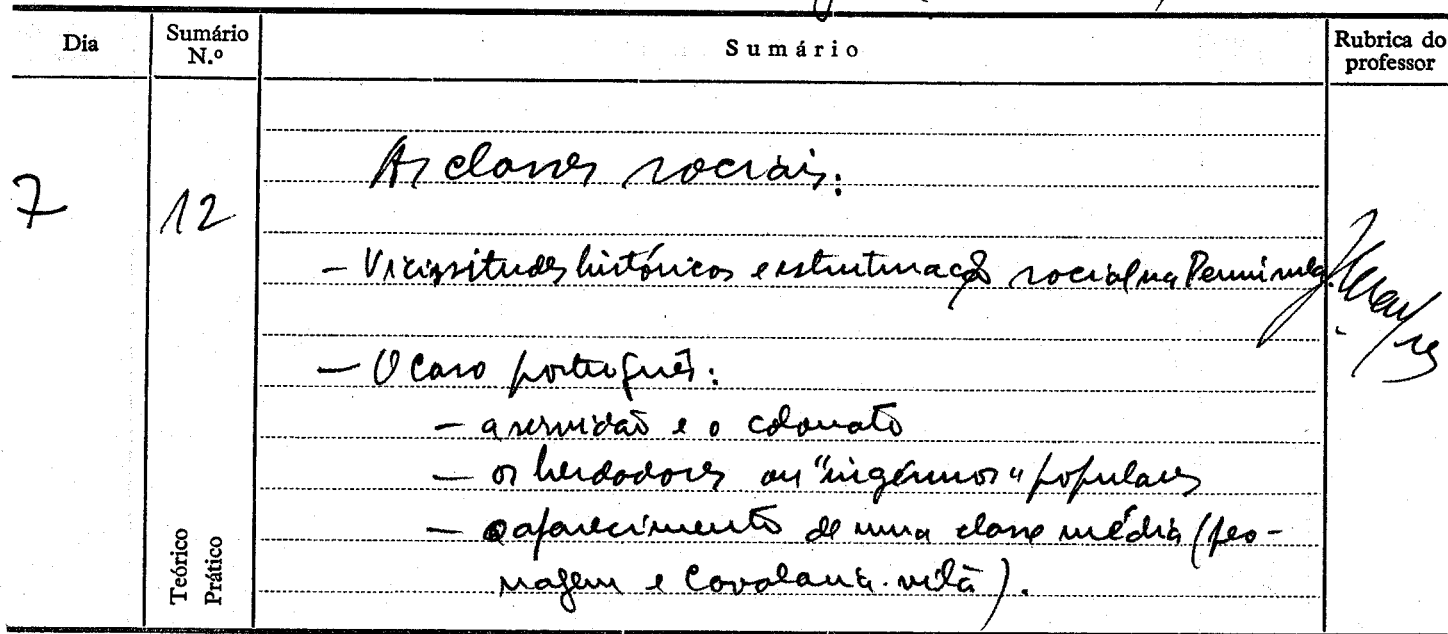 Dia
Sumário N.º
Sumário
Rubrica do professor
7
12
As classes sociais:
– Vicissitudes históricas e estruturação social na Península.
– O caso português:
– a servidão e o colonato
– os herdadores ou "ingénuos" populares
– o aparecimento de uma classe média (peo-
nagem e cavalaria-vilã).
Teórico
Prático